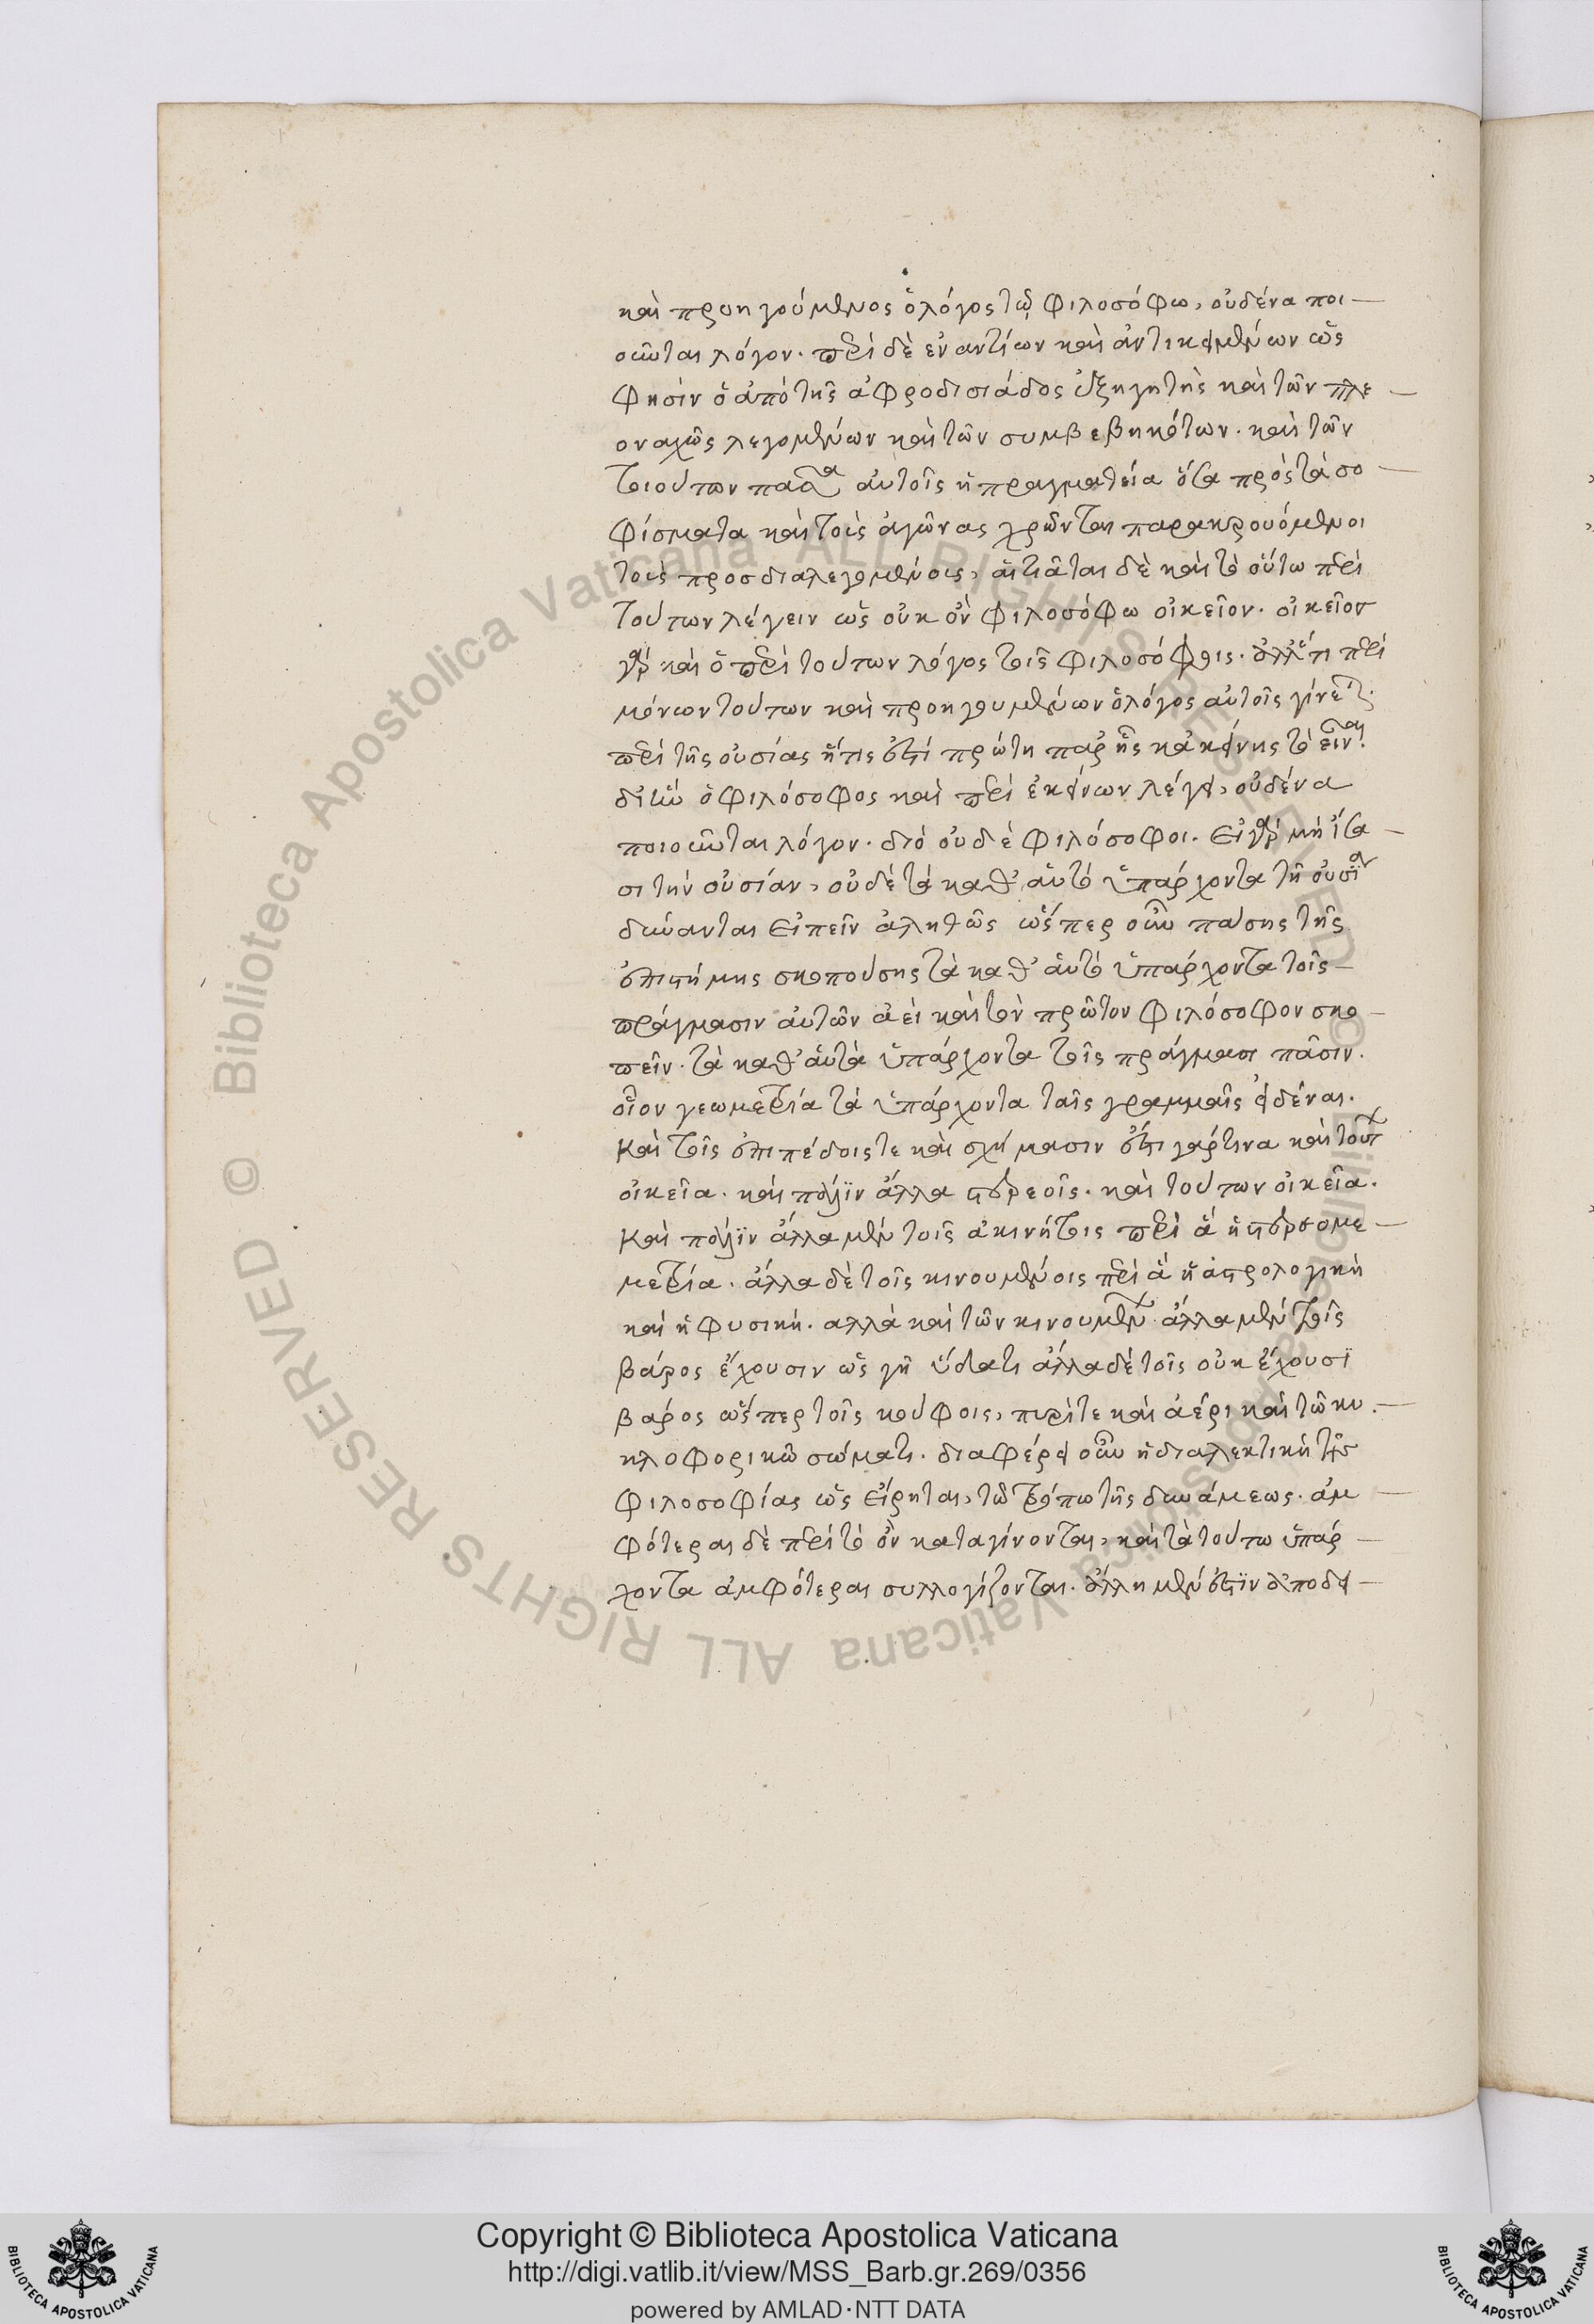 καὶ προηγούμενος ὁ λόγος τῷ φιλοσόφω, οὐδένα ποι-
οῦνται λόγον. περὶ δὲ ἐναντίων καὶ ἀντικειμένων ὥς
φησὶν ὁ ἀπὸ τῆς ἀφροδισιάδος ἐξηγητὴς καὶ τῶν πλε-
οναχῶς λεγομένων καὶ τῶν συμβεβηκότων. καὶ τῶν
τοιούτων πᾶσα αὐτοῖς ἡ πραγματεία ὅσα πρὸς τὰ σο-
φίσματα καὶ τοὺς ἀγῶνας χρῶνται παρακρουόμενοι
τοὺς προσδιαλεγομένους, αἰτιᾶται δὲ καὶ τὸ οὕτω περὶ
τούτων λέγειν ὡς οὐκ ὂν φιλοσόφω οἰκεῖον. οἰκεῖον
γὰρ καὶ ὁ περὶ τούτων λόγος τοῖς φιλοσόφοις. ἀλλ' ὅτι περὶ
μόνων τούτων καὶ προηγουμένων ὁ λόγος αὐτοῖς γίνεται.
περὶ τῆς οὐσίας ἥτις ἐστὶ πρώτη παρ' ἧς κἀκείνης τὸ εἶναι.
δι' ἣν ὁ φιλόσοφος καὶ περὶ ἐκείνων λέγει, οὐδένα
ποιοῦνται λόγον. διὸ οὐδὲ φιλόσοφοι. εἰ γὰρ μὴ ἴσα-
σι τὴν οὐσίαν, οὐδὲ τὰ καθ' αὑτὸ ὑπάρχοντα τῆ οὐσία
δύνανται εἰπεῖν ἀληθῶς ὥσπερ οὖν πάσης τῆς
ἐπιστήμης σκοπούσης τὰ καθ' αὑτὸ ὑπάρχοντα τοῖς-
πράγμασιν αὐτῶν ἀεὶ καὶ τὸν πρῶτον φιλόσοφον σκο-
πεῖν. τὰ καθ' αὑτὰ ὑπάρχοντα τοῖς πράγμασι πᾶσιν.
οἷον γεωμετρία τὰ ὑπάρχοντα ταῖς γραμμαῖς εἰδέναι.
καὶ τοῖς ἐπιπέδοις τε καὶ σχήμασιν ἔστι γάρ τινα καὶ τούτων
οἰκεῖα. καὶ πάλιν ἄλλα στερεοῖς. καὶ τούτων οἰκεῖα.
καὶ πάλιν ἄλλα μὲν τοῖς ἀκινήτοις περὶ ἃ ἡ στερεομε-
μετρία. ἄλλα δὲ τοῖς κινουμένοις περὶ ἃ ἡ ἀστρολογικὴ
καὶ ἡ φυσική. αλλὰ καὶ τῶν κινουμένων ἄλλα μὲν τοῖς
βάρος ἔχουσιν ὡς γῆ ὕδατι ἄλλα δὲ τοῖς οὐκ ἔχουσϊ
βάρος ὥσπερ τοῖς κούφοις, πυρίτε καὶ ἀέρι καὶ τῶ κυ.-
κλοφορικῶ σώματι. διαφέρει οὖν ἡ διαλεκτικὴ τῆς
φιλοσοφίας ὡς εἴρηται, τῶ τρόπω τῆς δυνάμεως. ἀμ-
φότεραι δὲ περὶ τὸ ὂν καταγίνονται, καὶ τὰ τούτω ὑπάρ-
χοντα ἀμφότεραι συλλογίζονται. ἀλλ' ἡ μὲν ἐστϊν ἀποδει-